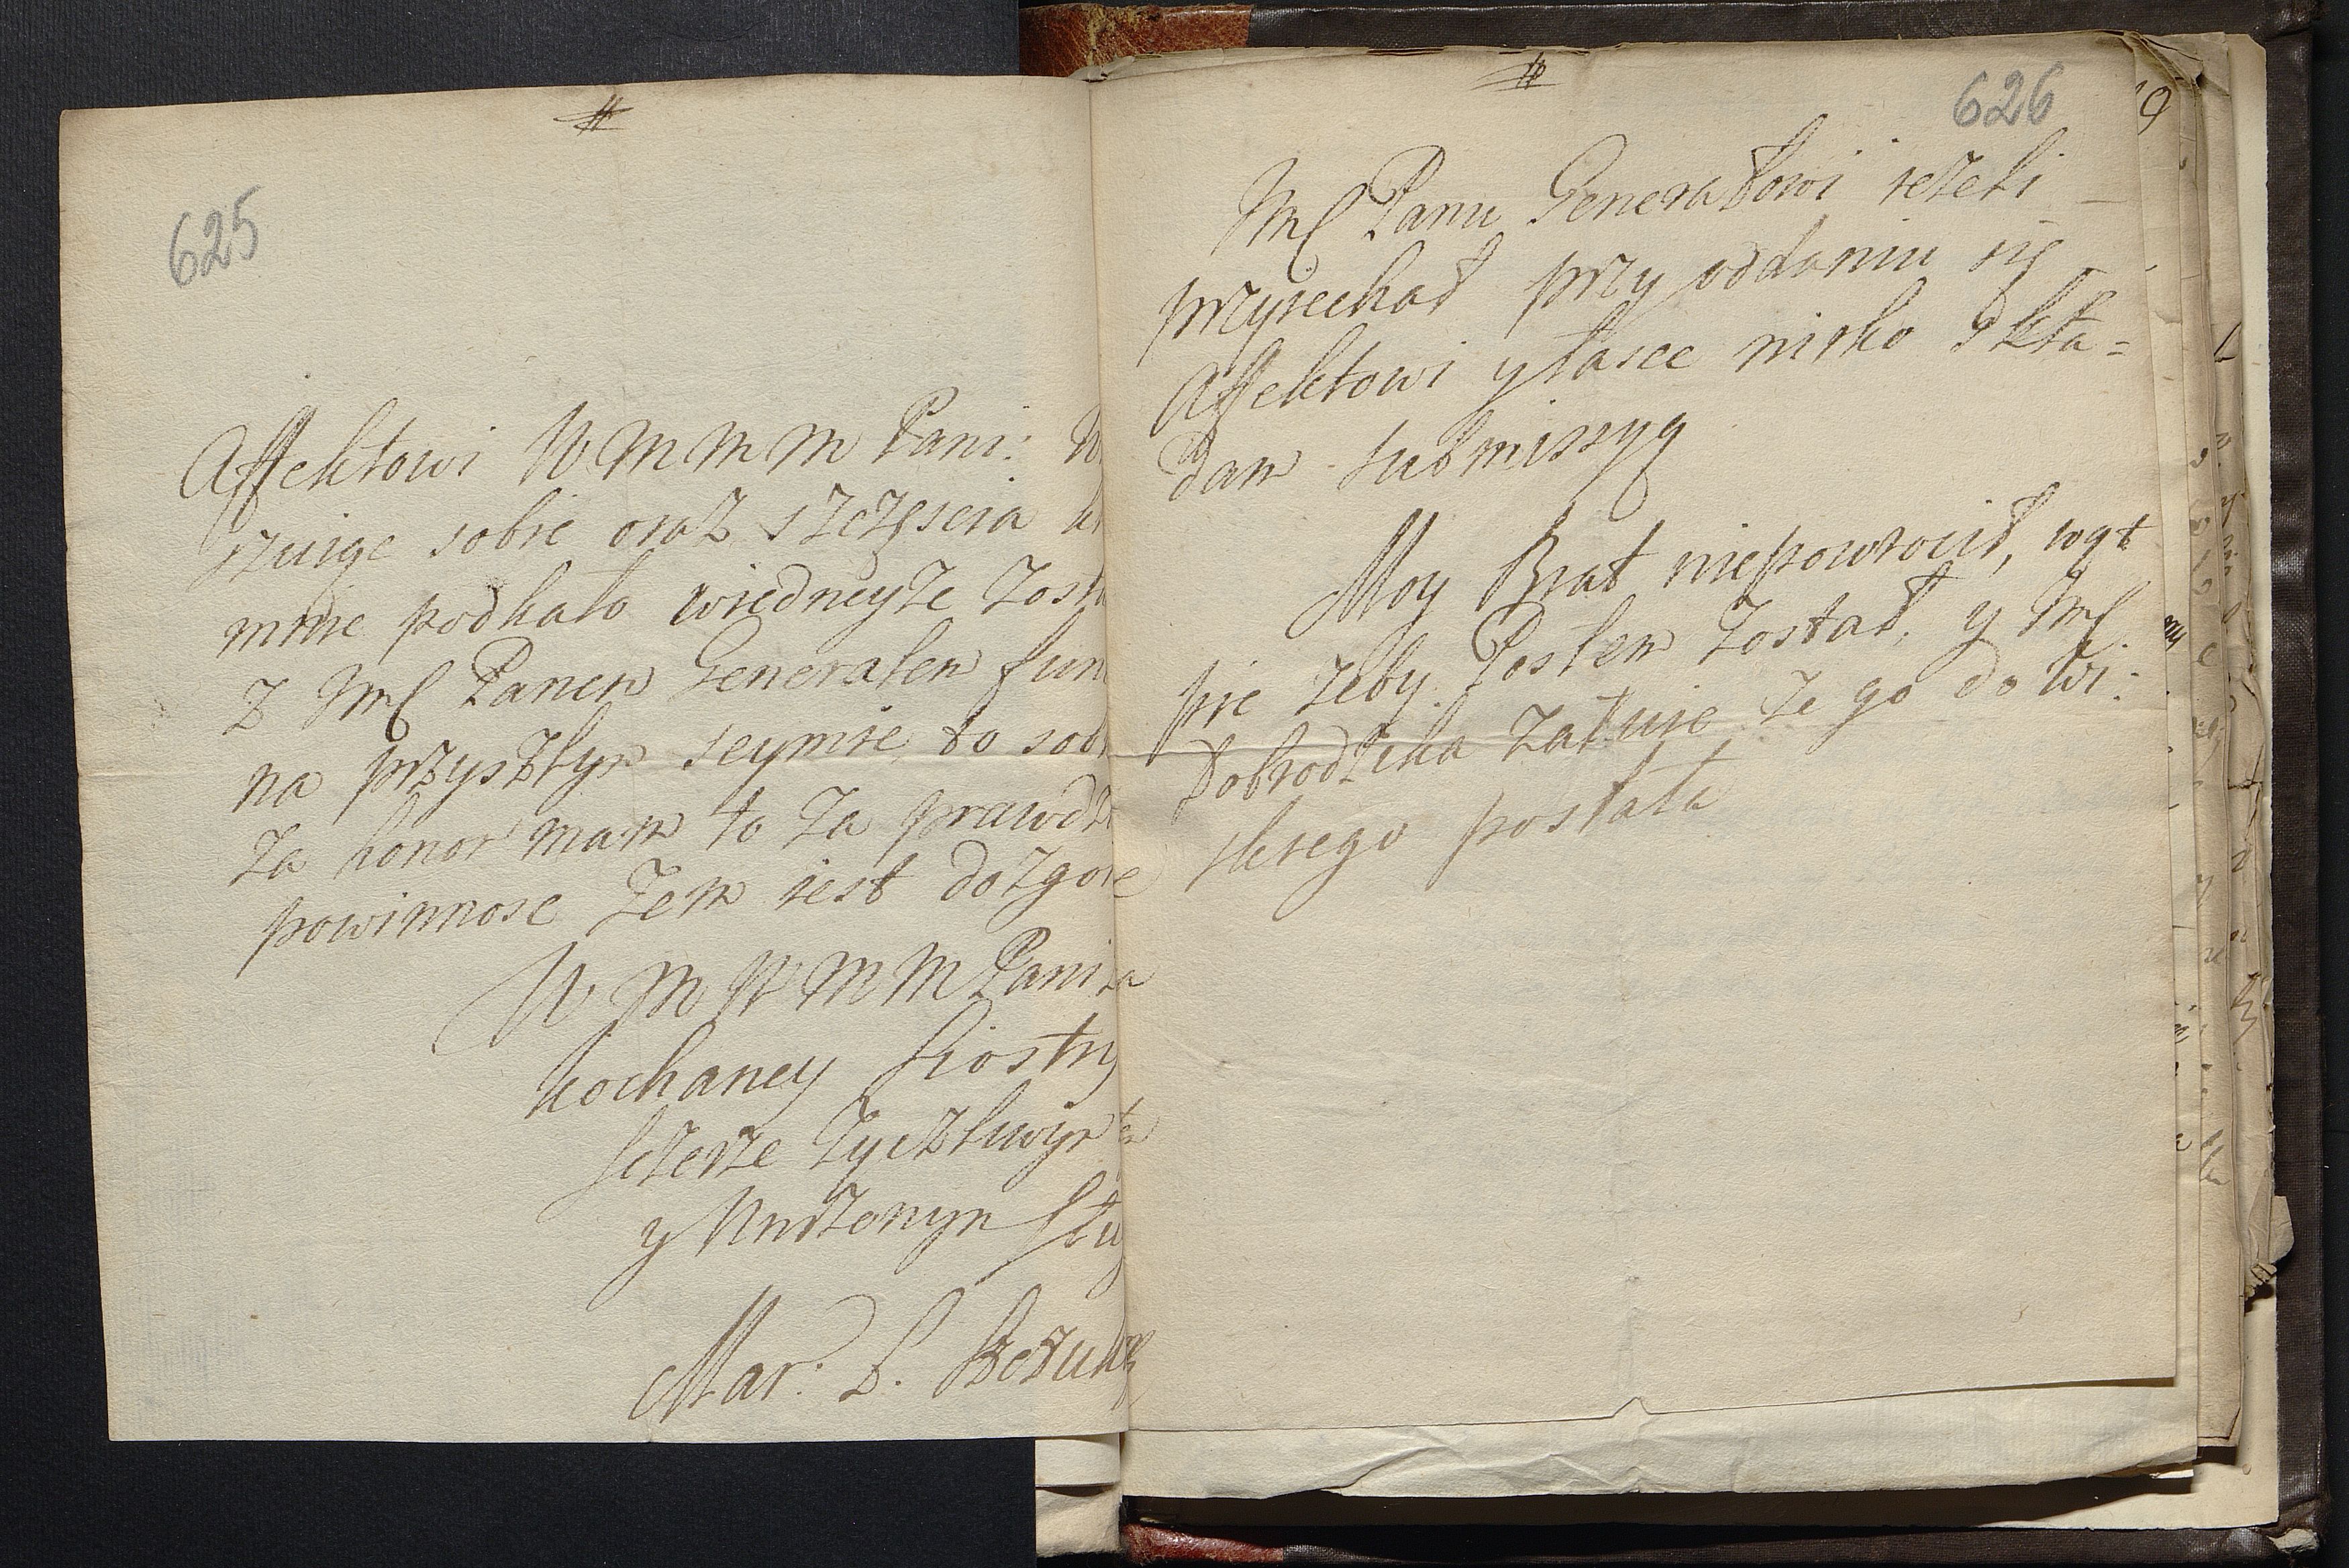 #
625
Affektowi W M M M Pani: W
szuięc sobie oraz szczęscia k
mnie podkało wiedneyże zosta
z JmC Panem Generałem fun
na przyszłym seymie, to sob
za honor mam to za prawdz
powinnosc żem iest dozgone
W M W M M Pani a
kochaney Siostry
Sczerze życzliwym
y Uniżonym Słu
Mar: P.
#
626
19
JmC Panu Generałowi ieżeli
przyiechał przy oddaniu się
Affektowi y łasce nisko Skła=
dam submissyą
Moy Brat niepowrocił, wąt
pie żeby Posłem został, y JmC.
Dobrodzika żałuie że go do Wi:
skiego posłała